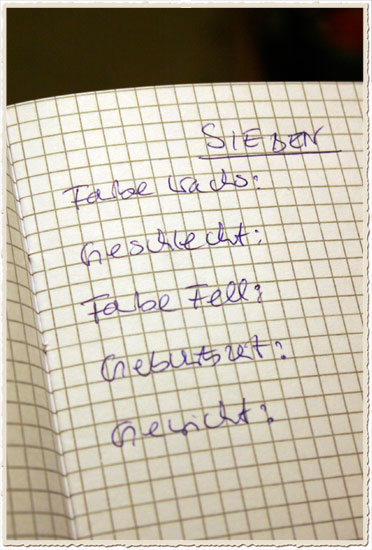 SIEBEN
Farbe Wachs:
Geschlecht:
Farbe Fell:
Geburtszeit:
Gewicht: